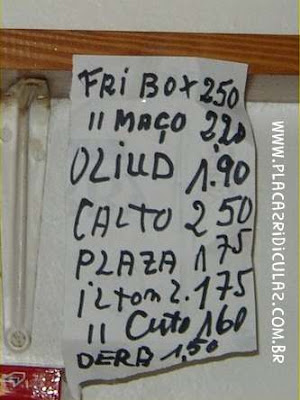 FRI BOX 250
11 MAÇO 2,20
OLIUD 1.90
CALTO 2 50
PLAZA 1 75
iLTON 2. 175
11 Cuto 160
DERB 1.50
WWW.PLACASRIDICULAS.COM.BR